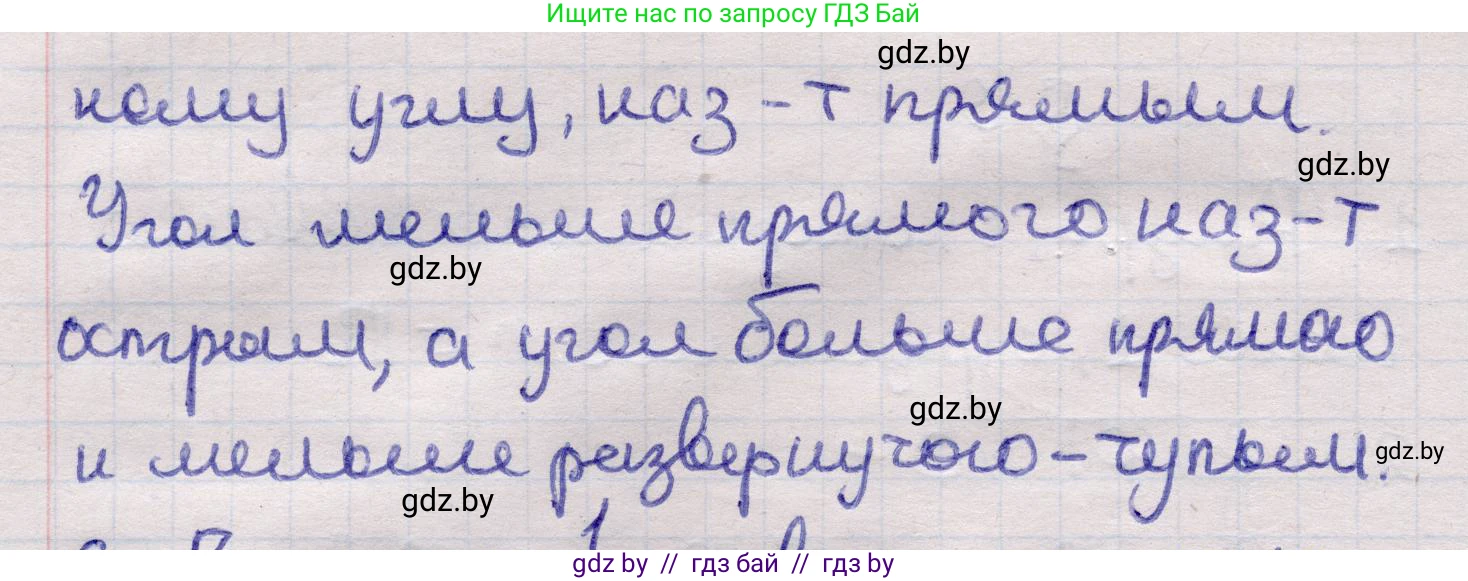 Ищите нас по запросу ГДЗ Бай
gdz.by
ному углу, наз-т прямым.
gdz.by
Угол меньше прямого наз-т
gdz.by
острым, а угол больше прямого
gdz.by
и меньше развернутого - тупым.
gdz.by
gdz.by
gdz by // гдз бай // гдз by